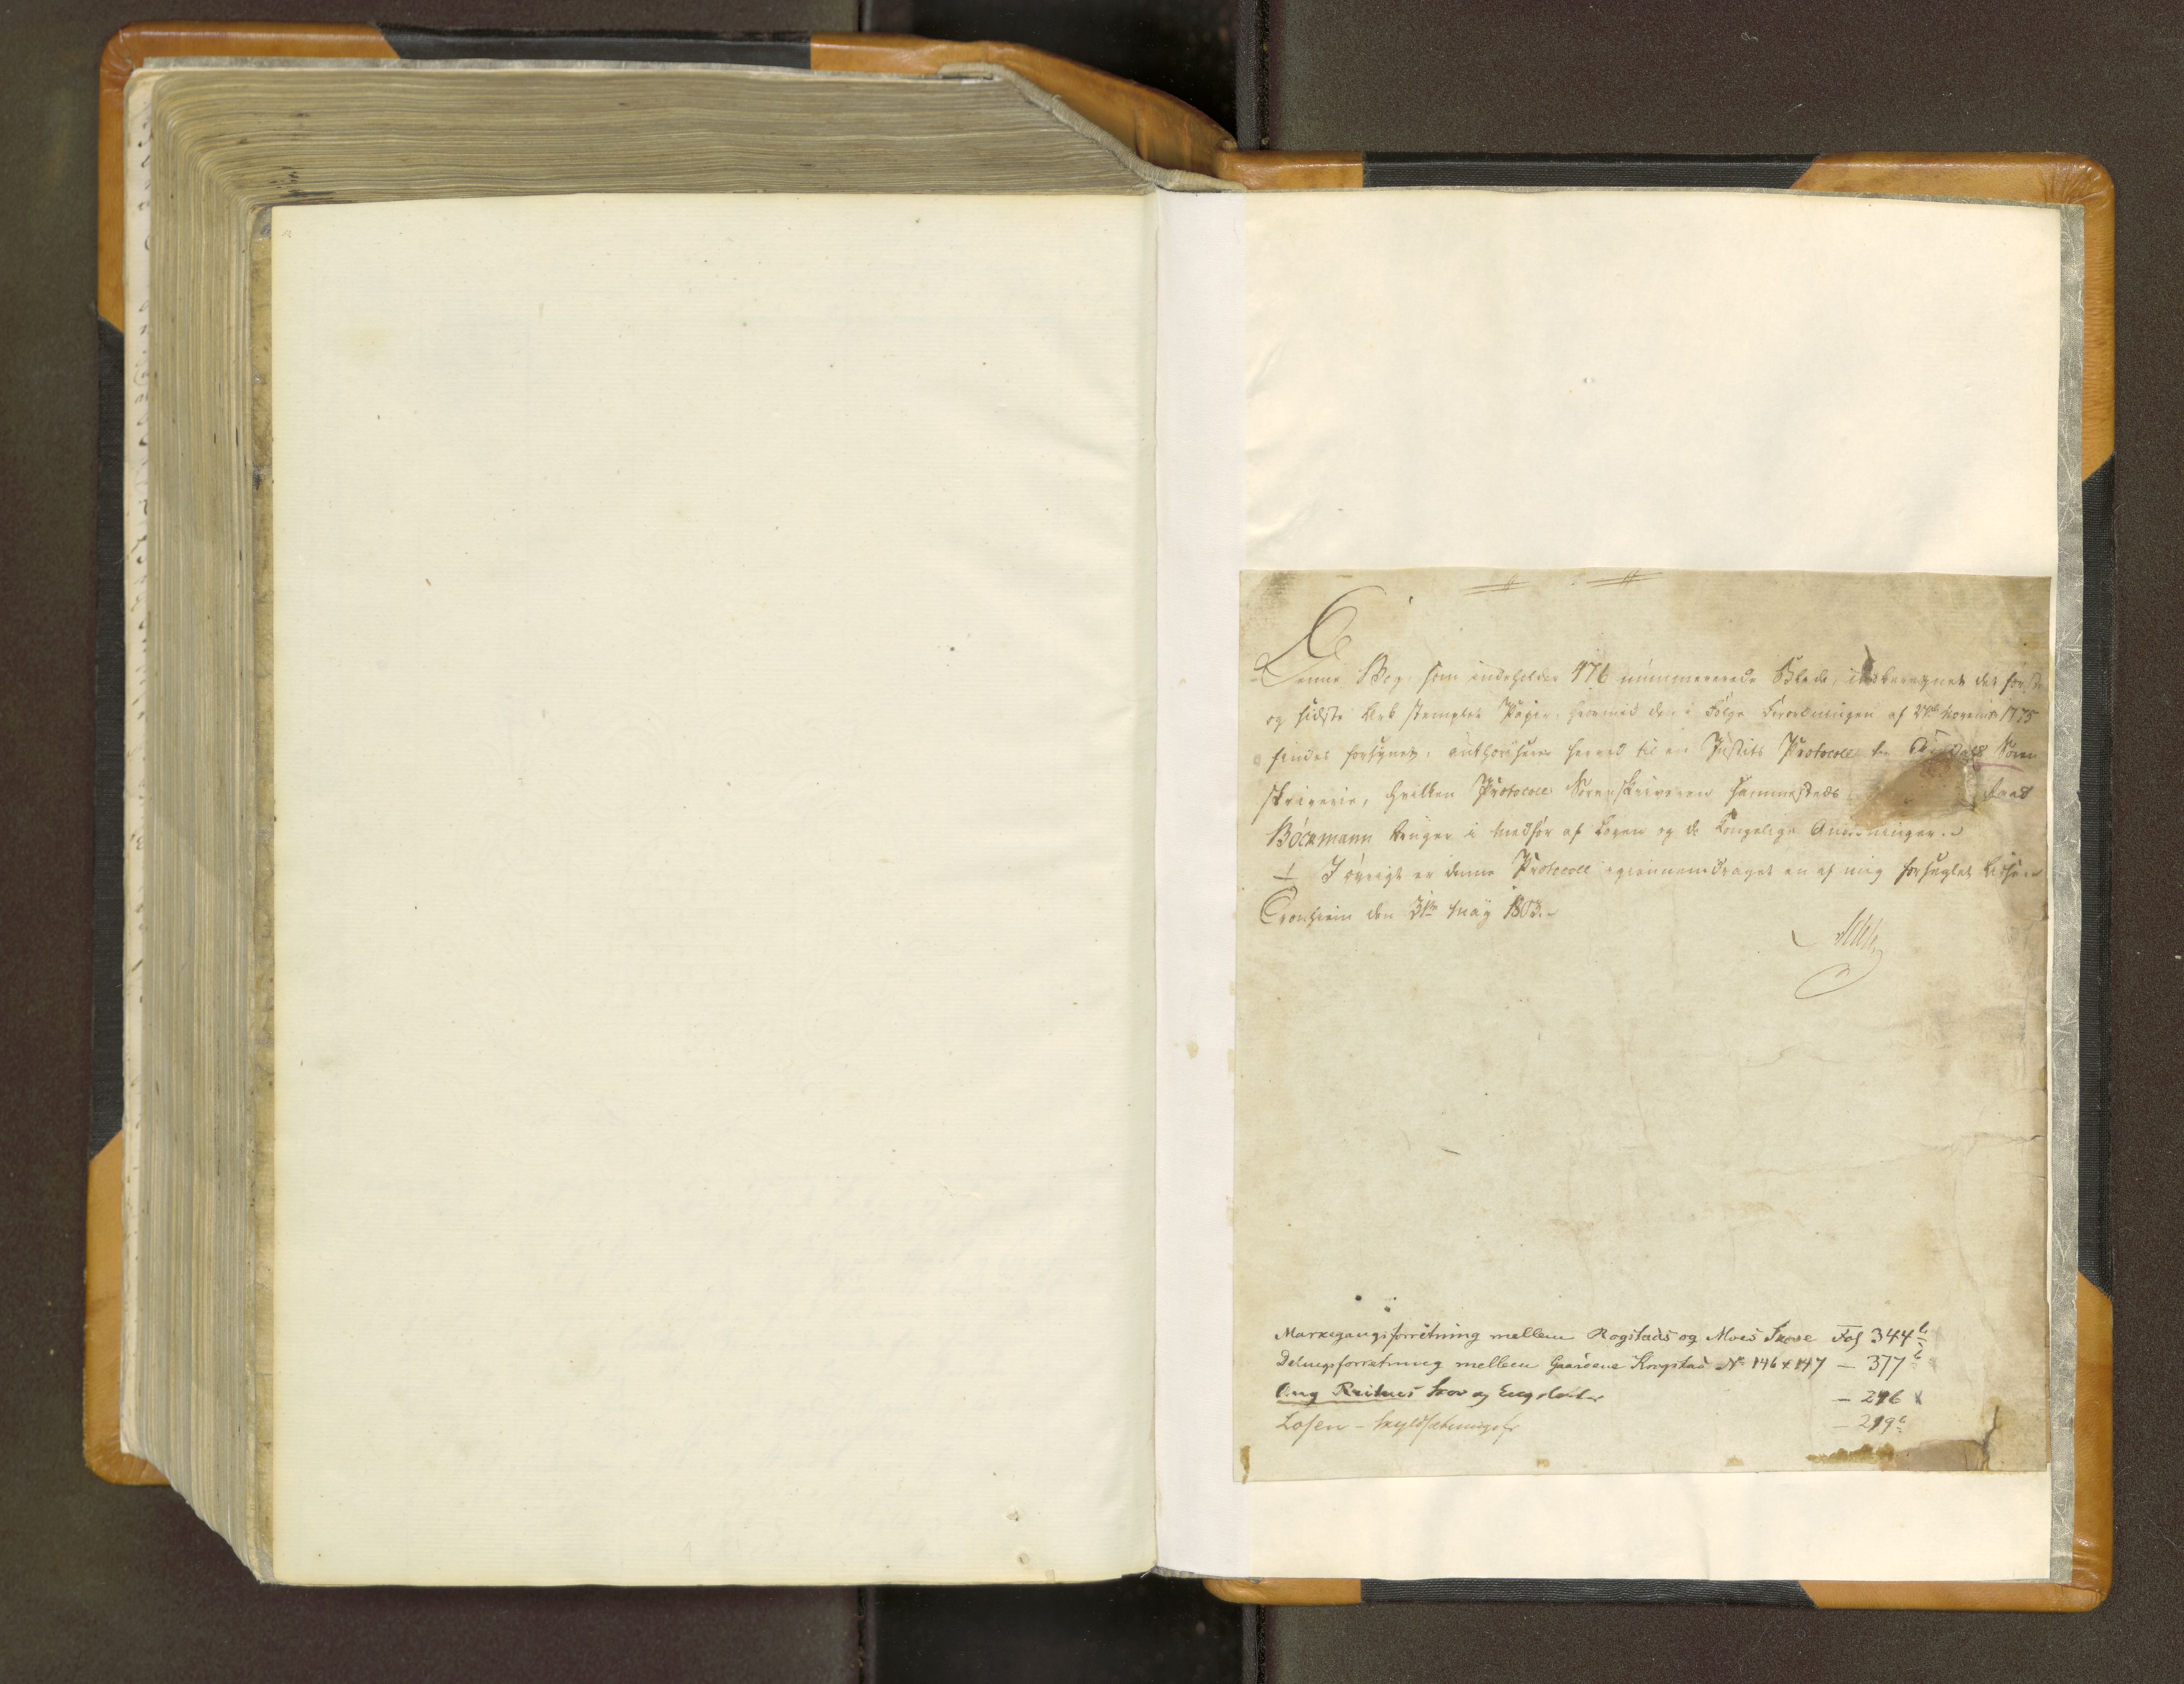 Denne Bog, som indeholder 476 nummererede Blade, iberegnet det første
og sidste Ark stemplet Papir, hvormed den i Følge Forordningen af 27de Novembr 1775
findes forsynet, authoriseres herved til en Justits Protocoll for Soren
skriverie, hvilken Protocoll Sorenskriveren sammesteds Raad
Böckmann bruger i Medfør af Loven og de Kongelige Anordninger.
I øvrigt er denne Protocoll igiennemdraget en af mig forseglet
Tronhiem den 31te May 1803.
Markegangsforretning mellem Rogstads og Moes Skove Fol 344b
Delingsforretning mellem Gaardene Krogstad No 146 & 147 — 377b
Ang Reitnes Skov og — 296
Losen - Skyldsætningsf — 219b